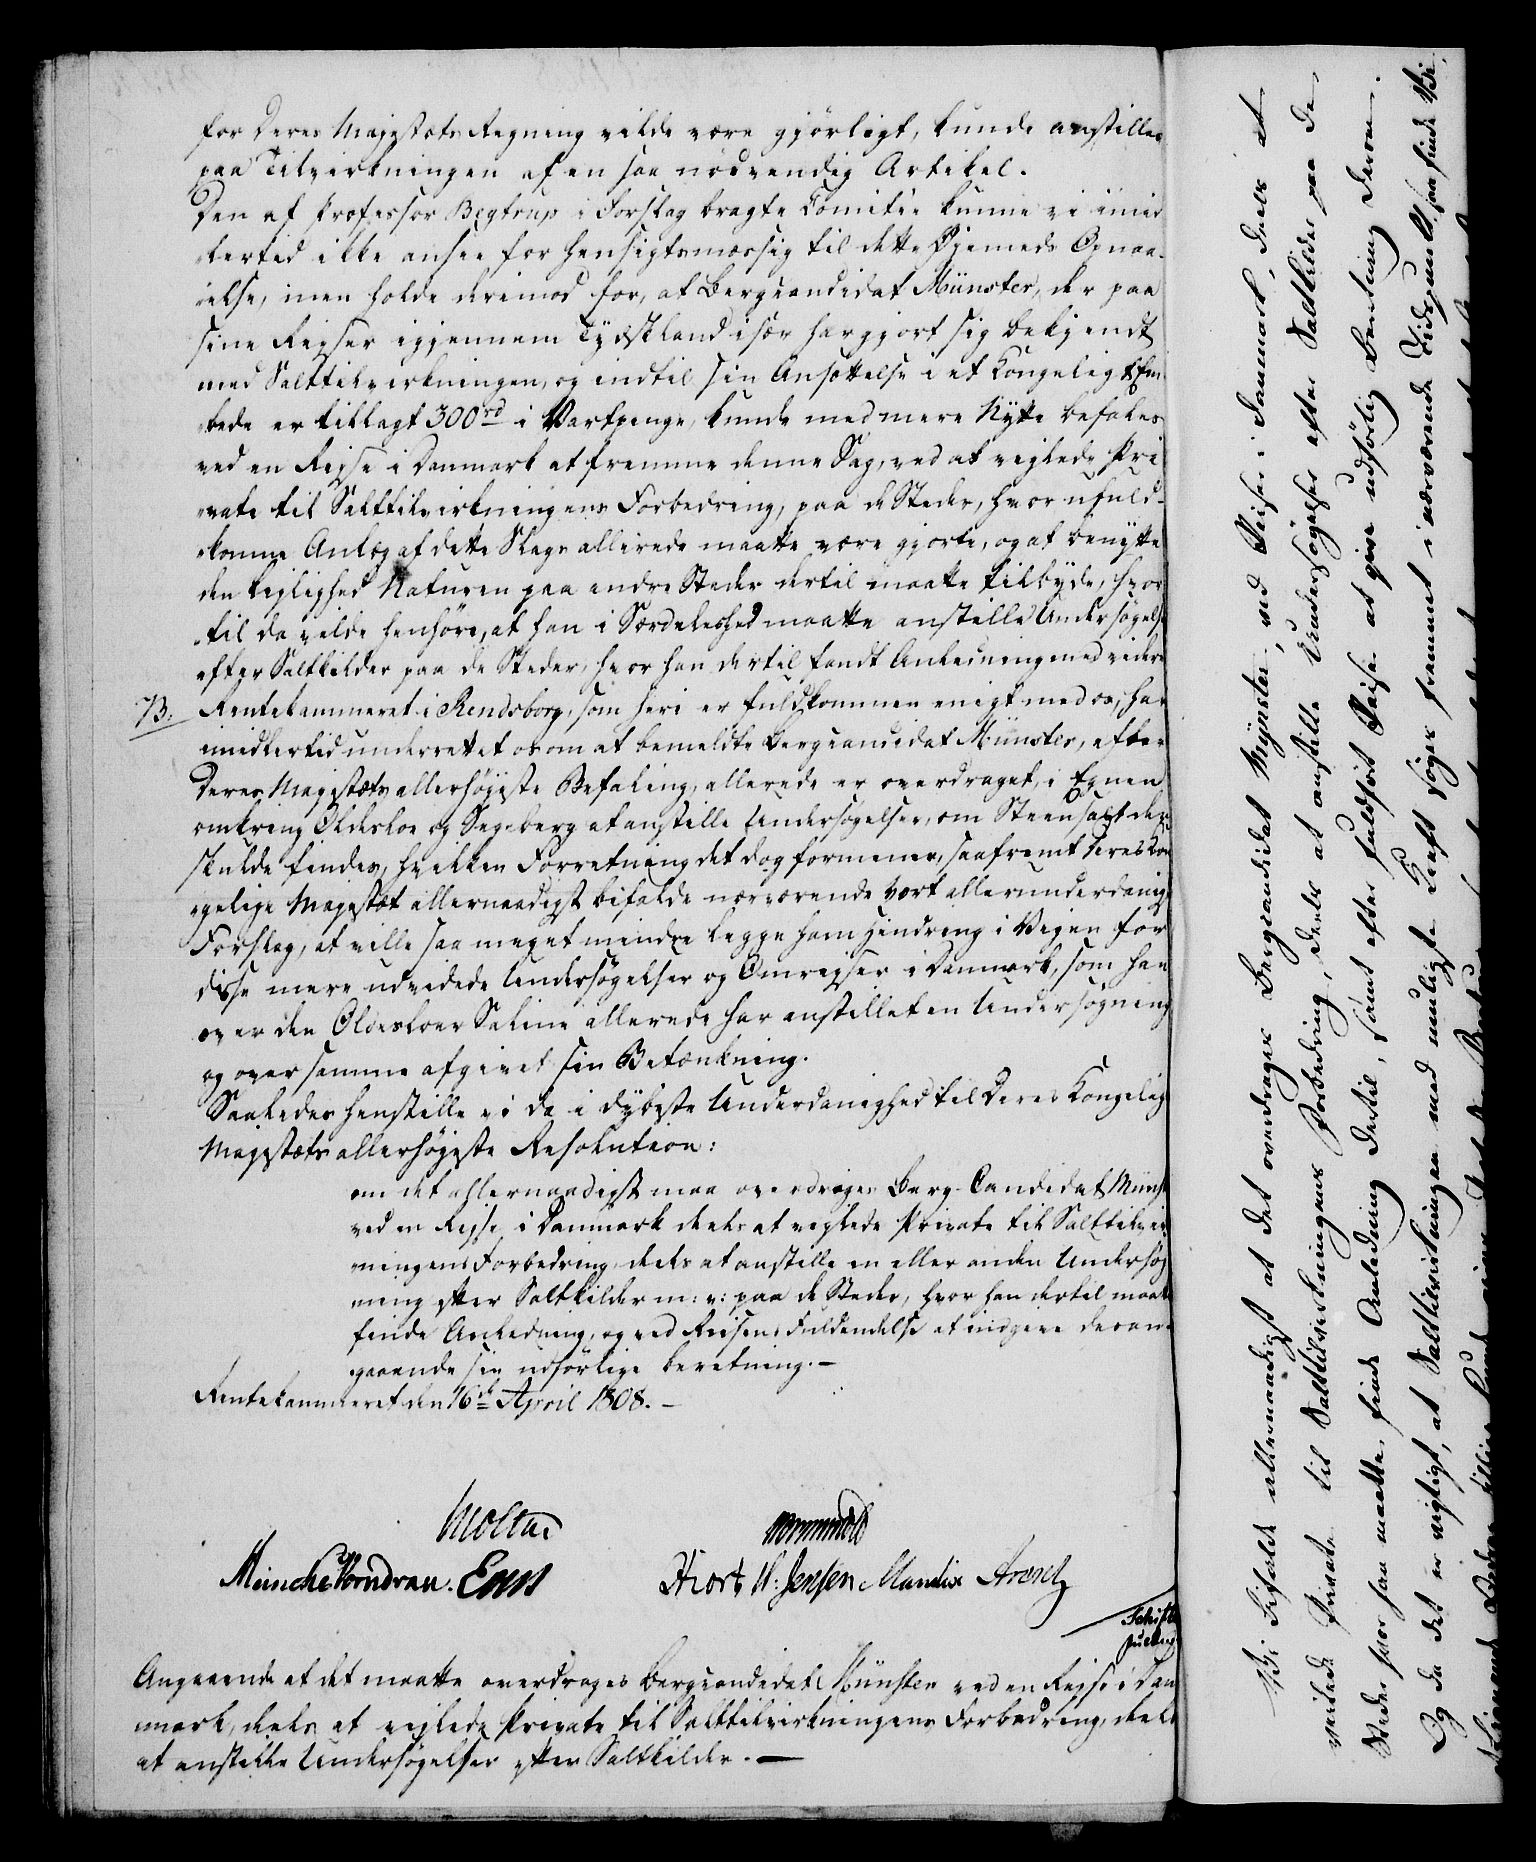 for Deres Majestæts Regning vilde være gjörligt, kunde anstilles
paa Tilvirkningen af en saa nödvendig Artikel.
Den af Professor Begtrup i Forslag bragte Comitée kunne vi imid
lertid ikke ansee for hensigtsmæssig til dette Öjemeds Opnaa-
else, men holde derimod for, at Bergcandidat Münster, der paa
sine Rejser igjennem Tydskland især har gjort sig bekjendt
med Salttilvirkningen, og indtil sin Ansættelse i et Kongeligt Em
bede er tillagt 300 rd i Vartpenge, kunde med mere Nytte befales
ved en Rejse i Danmark at fremme denne Sag, ved at vejlede Pri
vate til Salttilvirkningens Forbedring, paa de Steder, hvor ufuld-
komne Anlæg af dette Slags allerede maatte være gjorte, og at benytte
den Lejlighed Naturen paa andre Steder dertil maatte tilbyde, hvor
til da vilde henhöre, at han i Særdeleshed maatte anstille Undersögelse
efter Saltkilder paa de Steder, hvor han dertil fandt Anledning med videre
73. Rentekammeret i Rendsborg, som heri er fuldkommen enigt med os, har
imidlertid underrettet os om at bemeldte Bergcandidat Münster, efter
Deres Majestæts allerhöjeste Befaling, allerede er overdraget, i Egnen
omkring Oldesloe og Segeberg at anstille Undersögelser, om Steensalt der
skulde findes, hvilken Forretning det dog formener, saafremt Deres Kon
gelige Majestæt allernaadigst bifalde nærværende vort allerunderdanigste
Forslag, at ville saa meget mindre legge ham Hindring i Vejen for
disse mere udvidede Undersögelser og Omrejser i Danmark, som han
over den Oldesloer Saline allerede har anstillet en Undersögning
og over samme afgivet sin Betænkning.
Saaledes henstille vi da i dybeste Underdanighed til Deres Kongelige
Majestæts allerhöjeste Resolution:
om det allernaadigst maa overdrages Berg-Candidat Münst
ved en Rejse i Danmark deels at vejlede Private til Salttilvirk
ningens Forbedring, deels at anstille en eller anden Undersög
ning efter Saltkilder m: v: paa de Steder, hvor han dertil maatte
finde Anledning, og ved Reisens Fuldendelse at indgive deran-
gaaende sin udförlige beretning. —
Rentekammeret den 16de April 1808. —
Moltke Wormskiold
Meinche Vorndran. Eons Hiort N: Jensen Mandix Aron
Schifte
Angaaende at det maatte overdrages Bergcandidat Münster ved en Rejse i Dan
mark, deels at vejlede Private til Salttilvirkningens Forbedring, deels
at anstille Undersögelser efter Saltkilder. —
Vi bifalde allernaadigst at det overdrages Bergcandidat Mynster, ved Reiser i Danmark, deels at
veilede Private til Salttilvirkningens Forbedring, deels at anstille Undersögelser efter Saltkilder paa de
Steder hvor han maatte finde Anledning dertil, samt efter fuldfört Reise at give udförlig Beretning derom.
Og da det er vigtigt, at Salttilvirkningen med muligste Kraft söges fremmet i nærværende Tidspunkt, saa finde Vi